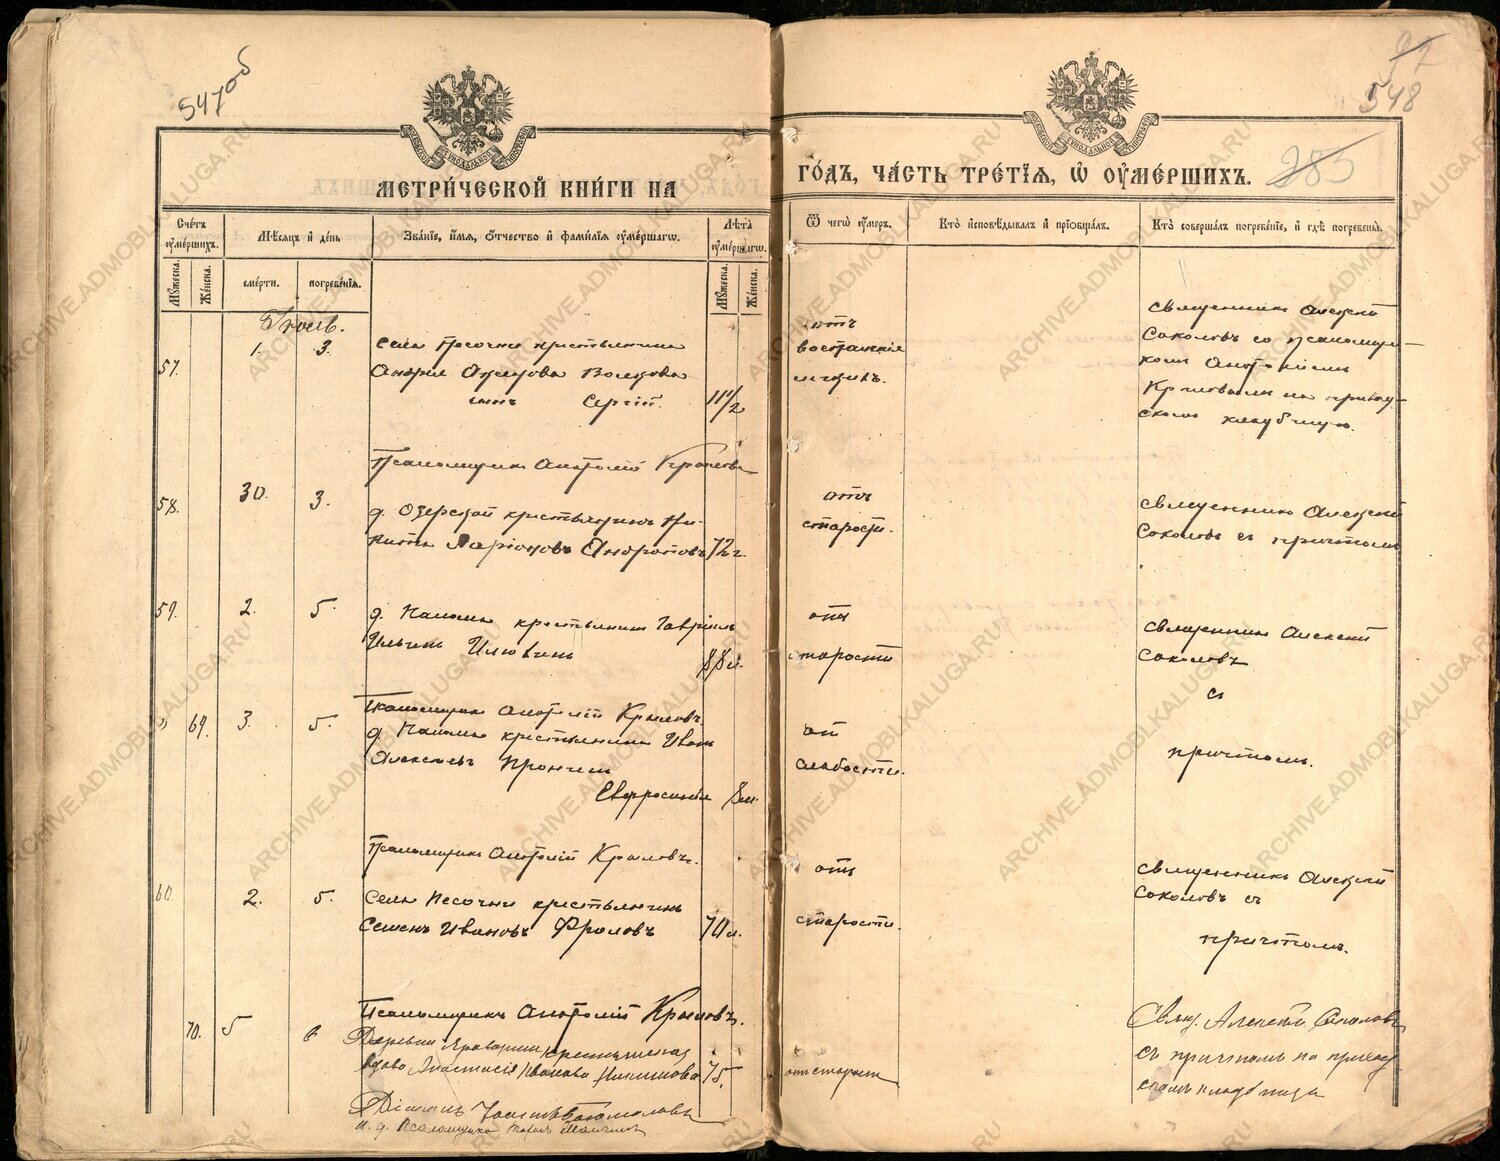 547об
92
548
285
МЕТРИ́ЧЕСКОЙ КНИ́ГИ НА
ГО́ДЪ, ЧА́СТЬ ТРЕ́ТІѦ, Ѡ ОУМЕ́РШИХЪ.
Сче́тъ оуме́ршихъ.
Мѣсяцъ и де́нь
Зва́ніе, и́мя, о́тчество и фами́лія оуме́ршагѡ.
Лѣ́та оуме́ршагѡ.
Ѿ чегѡ̀ оу́меръ.
Кто̀ исповѣ́дывалъ и пріобща́лъ.
Кто̀ соверша́лъ погребе́ніе, и гдѣ̀ погребены̀.
Мꙋ́жеска.
Же́нска.
сме́рти.
погребе́нія.
Мꙋ́жеска.
Же́нска.
57.
1.
3.
Села Песочни крестьянина
Андрея Волкова
сынъ Сергій.
11/2
отъ
воспаленія
легкихъ.
священникъ Алексій
Соколовъ со псаломщи-
комъ Анатоліемъ
Крыловымъ на приход-
скомъ кладбищѣ.
Псаломщикъ Анатолій Крыловъ
58.
30.
3.
д. Озерской крестьянинъ Ни-
кита Ларіоновъ Андроповъ
72 г.
отъ
старости.
священникъ Алексій
Соколовъ съ причтомъ
59.
2.
5.
д. крестьянинъ Гавріилъ
Ильинъ
88 л.
отъ
старости
священникъ Алексій
Соколовъ
съ
причтомъ.
Псаломщикъ Анатолій Крыловъ.
69.
3.
5.
д. крестьянина Иванъ
Алексѣевъ
Евфросинія
8 м.
от
слабости.
Псаломщикъ Анатолій Крыловъ.
60.
2.
5.
Села Песочни крестьянинъ
Семенъ Ивановъ Фроловъ
70 л.
отъ
старости.
священникъ Алексій
Соколовъ съ
причтомъ.
Псаломщикъ Анатолій Крыловъ.
70.
5
6
Деревни крестьянская
вдова Анастасія Иванова Никишова
75
отъ старости
Свящ. Алексѣй Соколовъ
съ причтомъ на приход
скомъ кладбищѣ
Діаконъ Богомоловъ
и. д. Псаломщика
ARCHIVE.ADMOBLKALUGA.RU